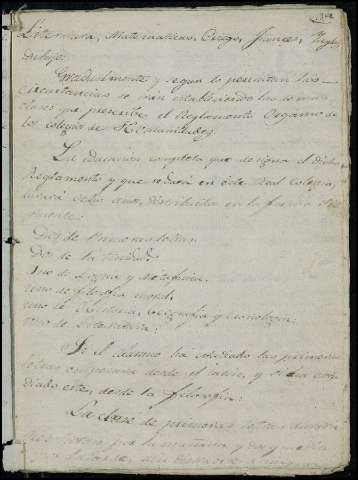 Literatura, Matematicas, Griego, Frances, Yngles
Dibujo.
Gradualmente y segun lo permitan las
circunstancias se irán estableciendo las demas
clases que prescribe el Reglamento Organico de
los colegios de Humanidades.
La educacion completa que designa el dicho
Reglamento y que se dará en este Real Colegio,
durará ocho años, distribuidos en la forma
Dos de Primeras letras.
Dos de latinidad.
Uno de Logica y Metafisica.
Uno de filosofia moral.
Uno de Historia, Geografia y Cronologia.
Uno de Literatura.
Si el alumno ha estudiado las primeras
letras empezará desde el latin, y si ha estu-
diado este, desde la filosofia.
La clase de primeras letras durará
tres horas por la mañana y dos